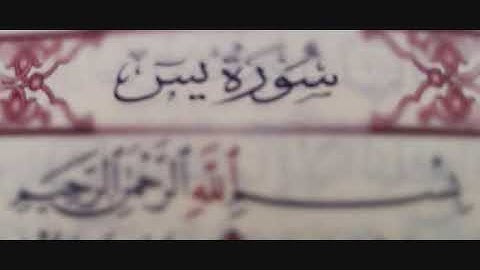 سُورَةُ يسٓ
بِسْمِ اللَّهِ الرَّحْمَٰنِ الرَّحِيمِ